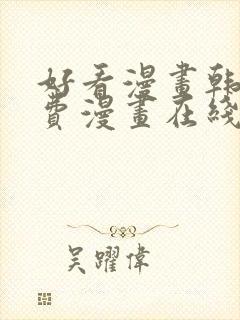 好看漫畫韩
費漫畫在綫
吴躍偉